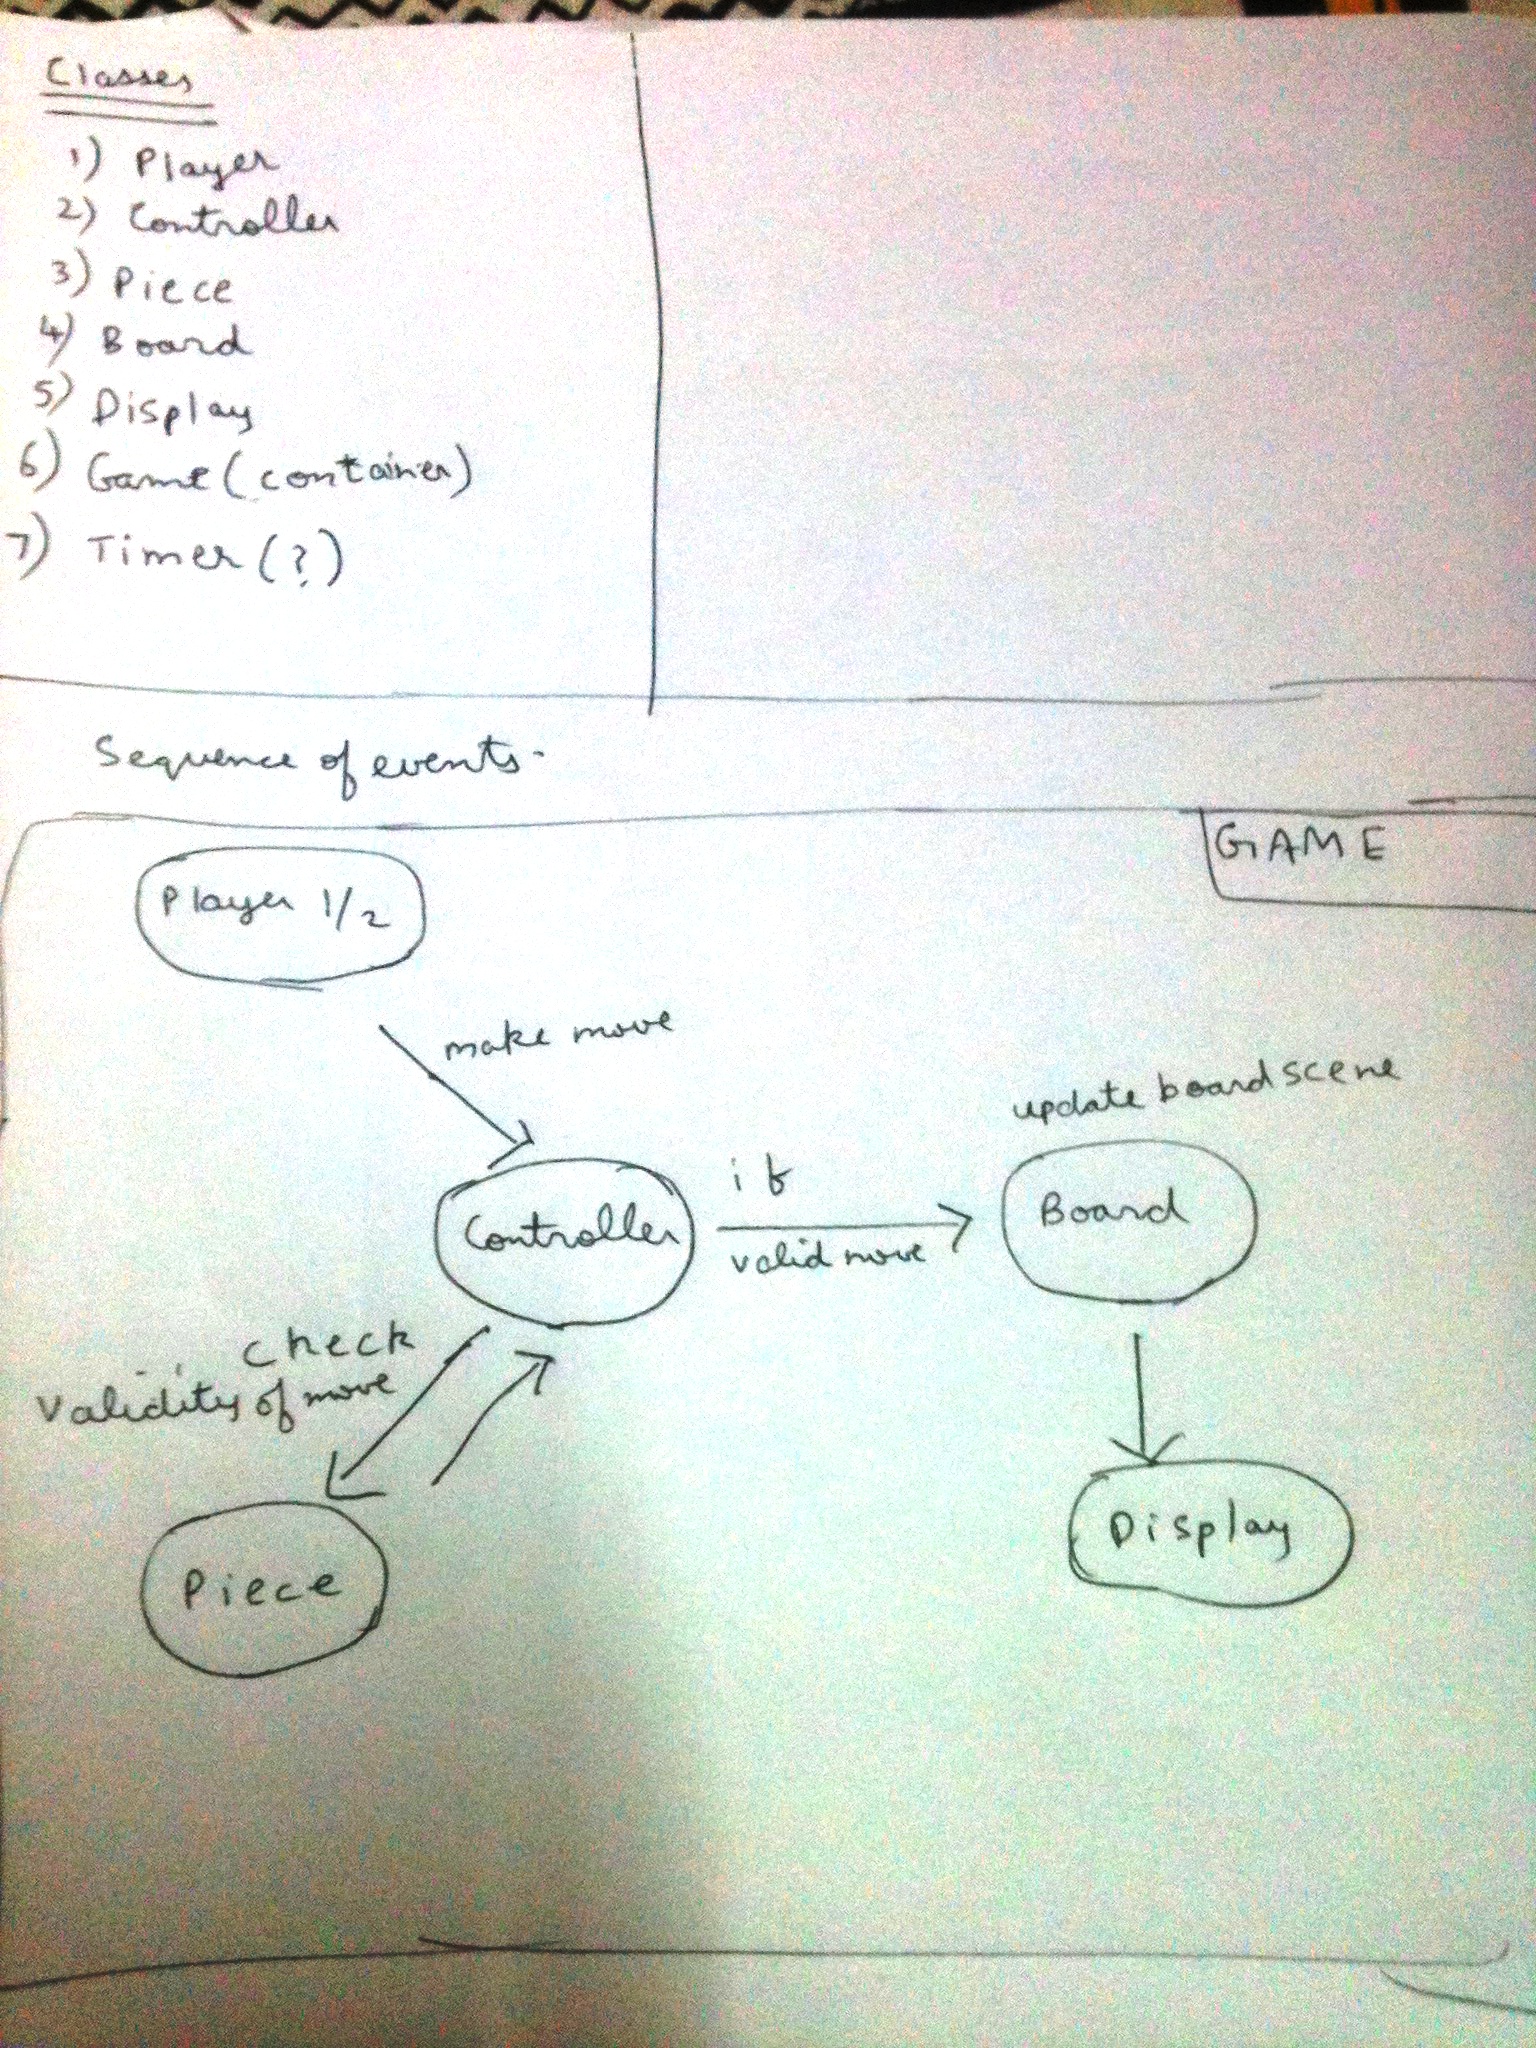 Classes
1) Player
2) Controller
3) Piece
4) Board
5) Display
6) Game (container)
7) Timer (?)
Sequence of events.
GAME
Player 1/2
make move
update board scene
Controller
if
valid move
Board
check
validity of move
Piece
Display